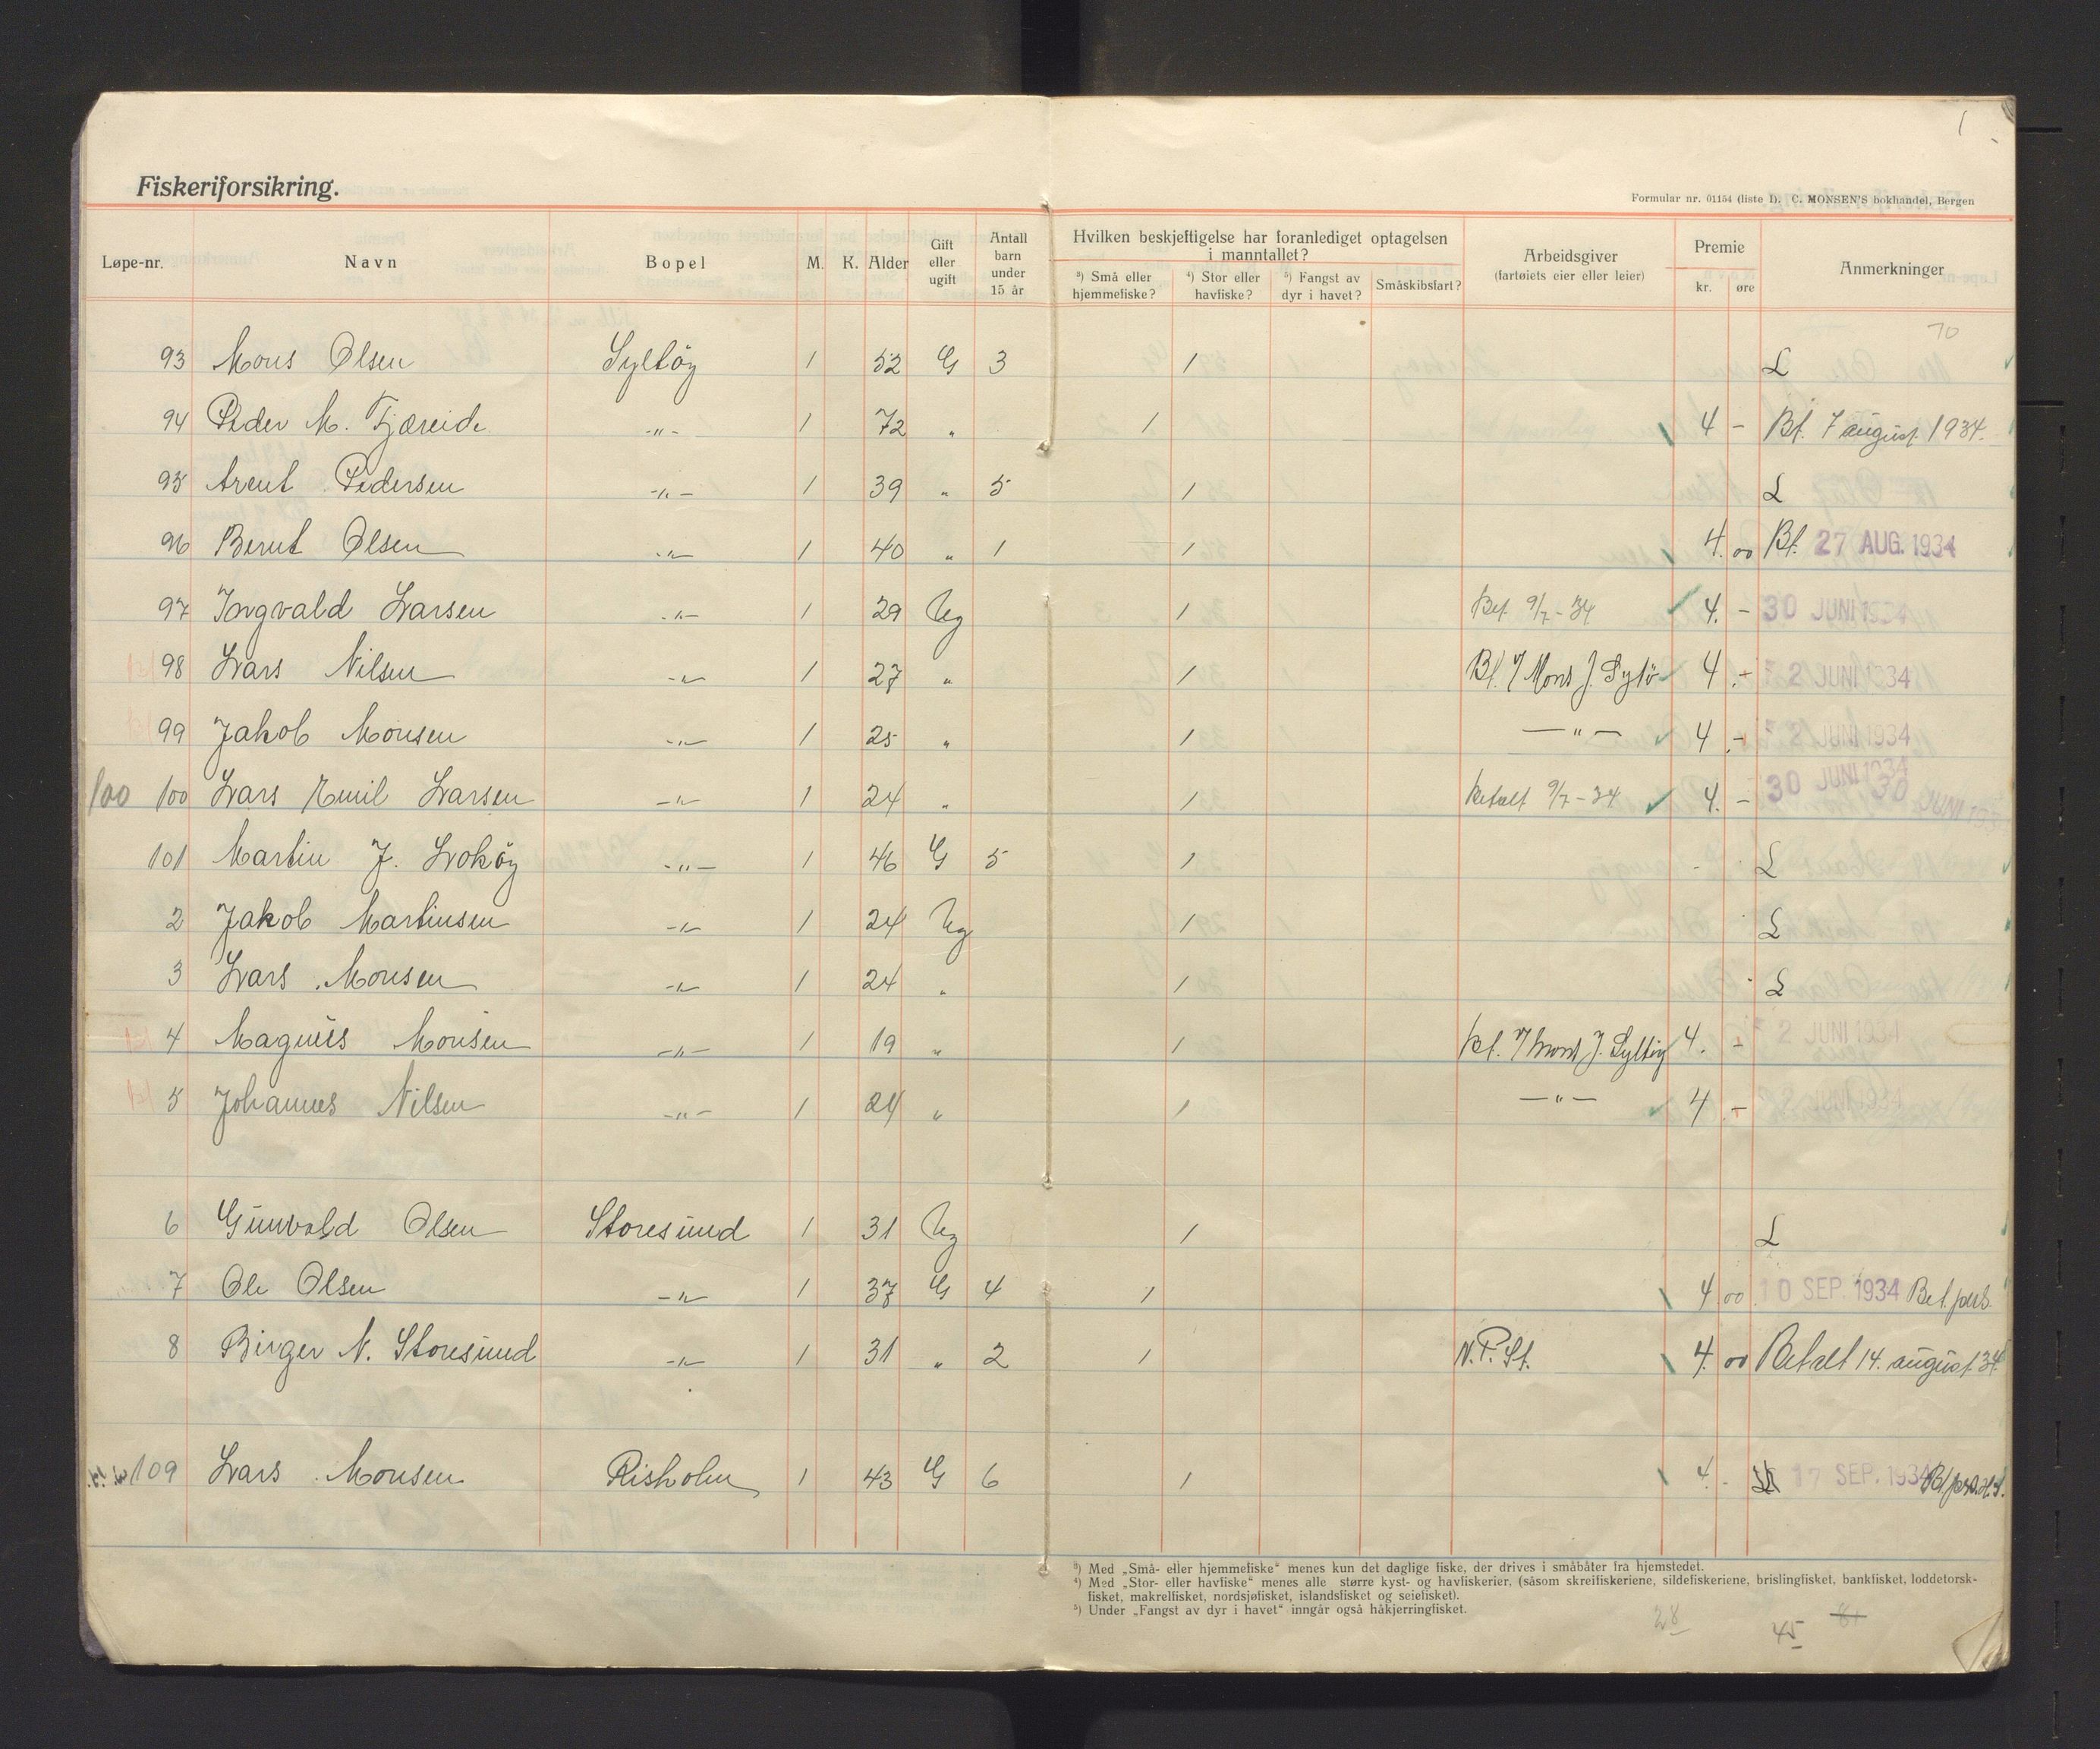 1
Fiskeriforsikring.
Formular nr. 01154 (liste I). C. MONSEN'S bokhandel, Bergen
Løpe-nr. Navn Bopel M. K. Alder Gift eller ugift Antall barn under 15 år Hvilken beskjeftigelse har foranlediget optagelsen i manntallet? ³) Små eller hjemmefiske? ⁴) Stor eller havfiske? ⁵) Fangst av dyr i havet? Småskibsfart? Arbeidsgiver (fartøiets eier eller leier) Premie kr. øre Anmerkninger
70
93 Mons Olsen Syltöy 1 52 G 3 1 L
94 Peder M. Fjæreide -"- 1 72 " 1 4 - Bt. 7 august 1934.
95 Arent Pedersen -"- 1 39 " 5 1 L
96 Bernt Olsen -"- 1 40 " 1 1 4. 00 Bt. 27 AUG. 1934
97 Ingvald Larsen -"- 1 29 Ug 1 Bet. 9/7-34 4. - 30 JUNI 1934
98 Lars Nilsen -"- 1 27 " 1 Bt. Mons J. Sylö 4 - 2 JUNI 1934
99 Jakob Monsen -"- 1 25 " 1 -"- 4 - 2 JUNI 1934
100 100 Lars Emil Larsen -"- 1 24 " 1 betalt 9/7-34 4. - 30 JUNI 1934 30 JUNI 193
101 Martin J. Lokøy -"- 1 46 G 5 1 L
2 Jakob Martinsen -"- 1 24 Ug 1 L
3 Lars Monsen -"- 1 24 " 1 L
4 Magnus Monsen -"- 1 19 " 1 bt. Mons J. Syltöy 4. - 2 JUNI 1934
5 Johannes Nilsen -"- 1 24 " 1 -"- 4 - 2 JUNI 1934
6 Gunvald Olsen Storesund 1 31 Ug 1 L
7 Ole Olsen -"- 1 37 G 4 1 4 00 10 SEP. 1934 Bet. pers.
8 Birger N. Storesund -"- 1 31 " 2 1 N.P.St. 4. 00 Betalt 14. august 34.
109 Lars Monsen Risholm 1 43 G 6 1 4. - 17 SEP. 1934 Bt. pers.
³) Med „Små- eller hjemmefiske" menes kun det daglige fiske, der drives i småbåter fra hjemstedet.
⁴) Med „Stor- eller havfiske" menes alle større kyst- og havfiskerier, (såsom skreifiskeriene, sildefiskeriene, brislingfisket, bankfisket, loddetorsk-
fisket, makrellfisket, nordsjøfisket, islandsfisket og seiefisket).
⁵) Under „Fangst av dyr i havet" inngår også håkjerringfisket.
28 45